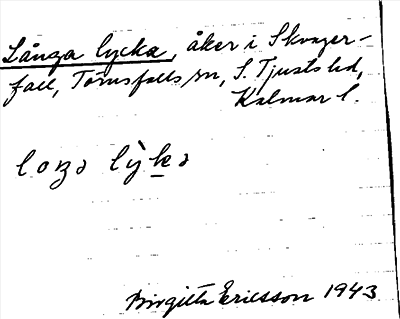 Långa lycka, åker i Skvager-
fall, Törnsfalls sn, S. Tjusts hd,
Kalmar l.
loŋa lỳka
Birgitta Ericsson 1943